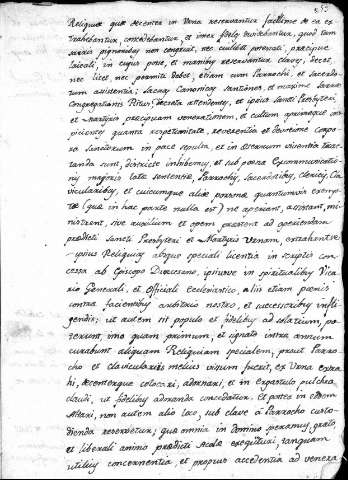 Reliquiæ quæ decenter in Urna reservantur facillime de ea ex
trahebantur, concedebantur, et inter fideles dividebantur, quod tam
sacris pignoribus non congruit, nec cuilibet personæ, præcipue
laicali, in cujus posse, et manibus reservantur claves, decet,
nec licet, nec permitti debet; etiam cum Parrochi, et Sacerdo-
tum assistentia; Sacras Canonicas Sanctiones, et maxime Sacræ
Congregationis Rituum Decreta attendentes, et ipsius Sancti Presbyteri
et Martyris præcipuam venerationem, et cultum, aprimeque ins-
picientes quanta respectivitate, reverentia et devotione corpo-
ra Sanctorum in pace sepulta, et in æternum viventia trac-
tanda sunt, districte inhibemus, et sub poena Excommunicatio-
nis majoris latæ sententiæ, Parrochis, Sacerdotibus, Clericis, Cla
viculariibus, et cuicumque aliæ personæ quantumvis exemp-
tæ (quæ in hac parte nulla est) ne aperiant, assistant, mi-
nistrent, sive auxilium et opem præstent ad aperiendam
prædicti Sancti Presbyteri et Martyris Urnam, extrahentve
ipsius Reliquias absque speciali licentia in scriptis con-
cessa ab Episcopo Dertusense, ipsiusve in spiritualibus Vica-
rio Generali, et Officiali Ecclesiastico, aliis etiam poenis
contra facientibus arbitrio nostro, et successoribus infli-
gendis; ut autem sit populo et fidelibus ad solatium, po-
terunt, imo quam primum, et signato intra annum
curabunt aliquam Reliquiam specialem, prout Parro-
cho et clavicularius melius visum fuerit, ex Urna extra
hi, decenterque colocari, adornari, et in expositulo pulchre
claudi, ut fidelibus adoranda concedatur. Et postea in eodem
Altari, non autem alio loco, sub clave à Parrocho custo-
dienda reservetur; quæ omnia in Domino speramus, grato
et liberali animo prædicti Acolæ exequituri, tanquam
utilius concernentia, et propius accedentia ad venera